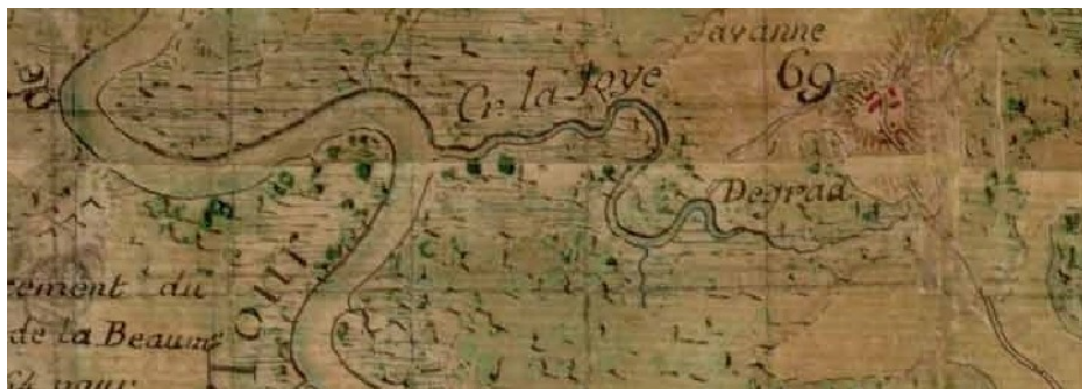 Savanne
69
Cr. la Joye
Degrad
Tour
cement du
de la Beaume
pour